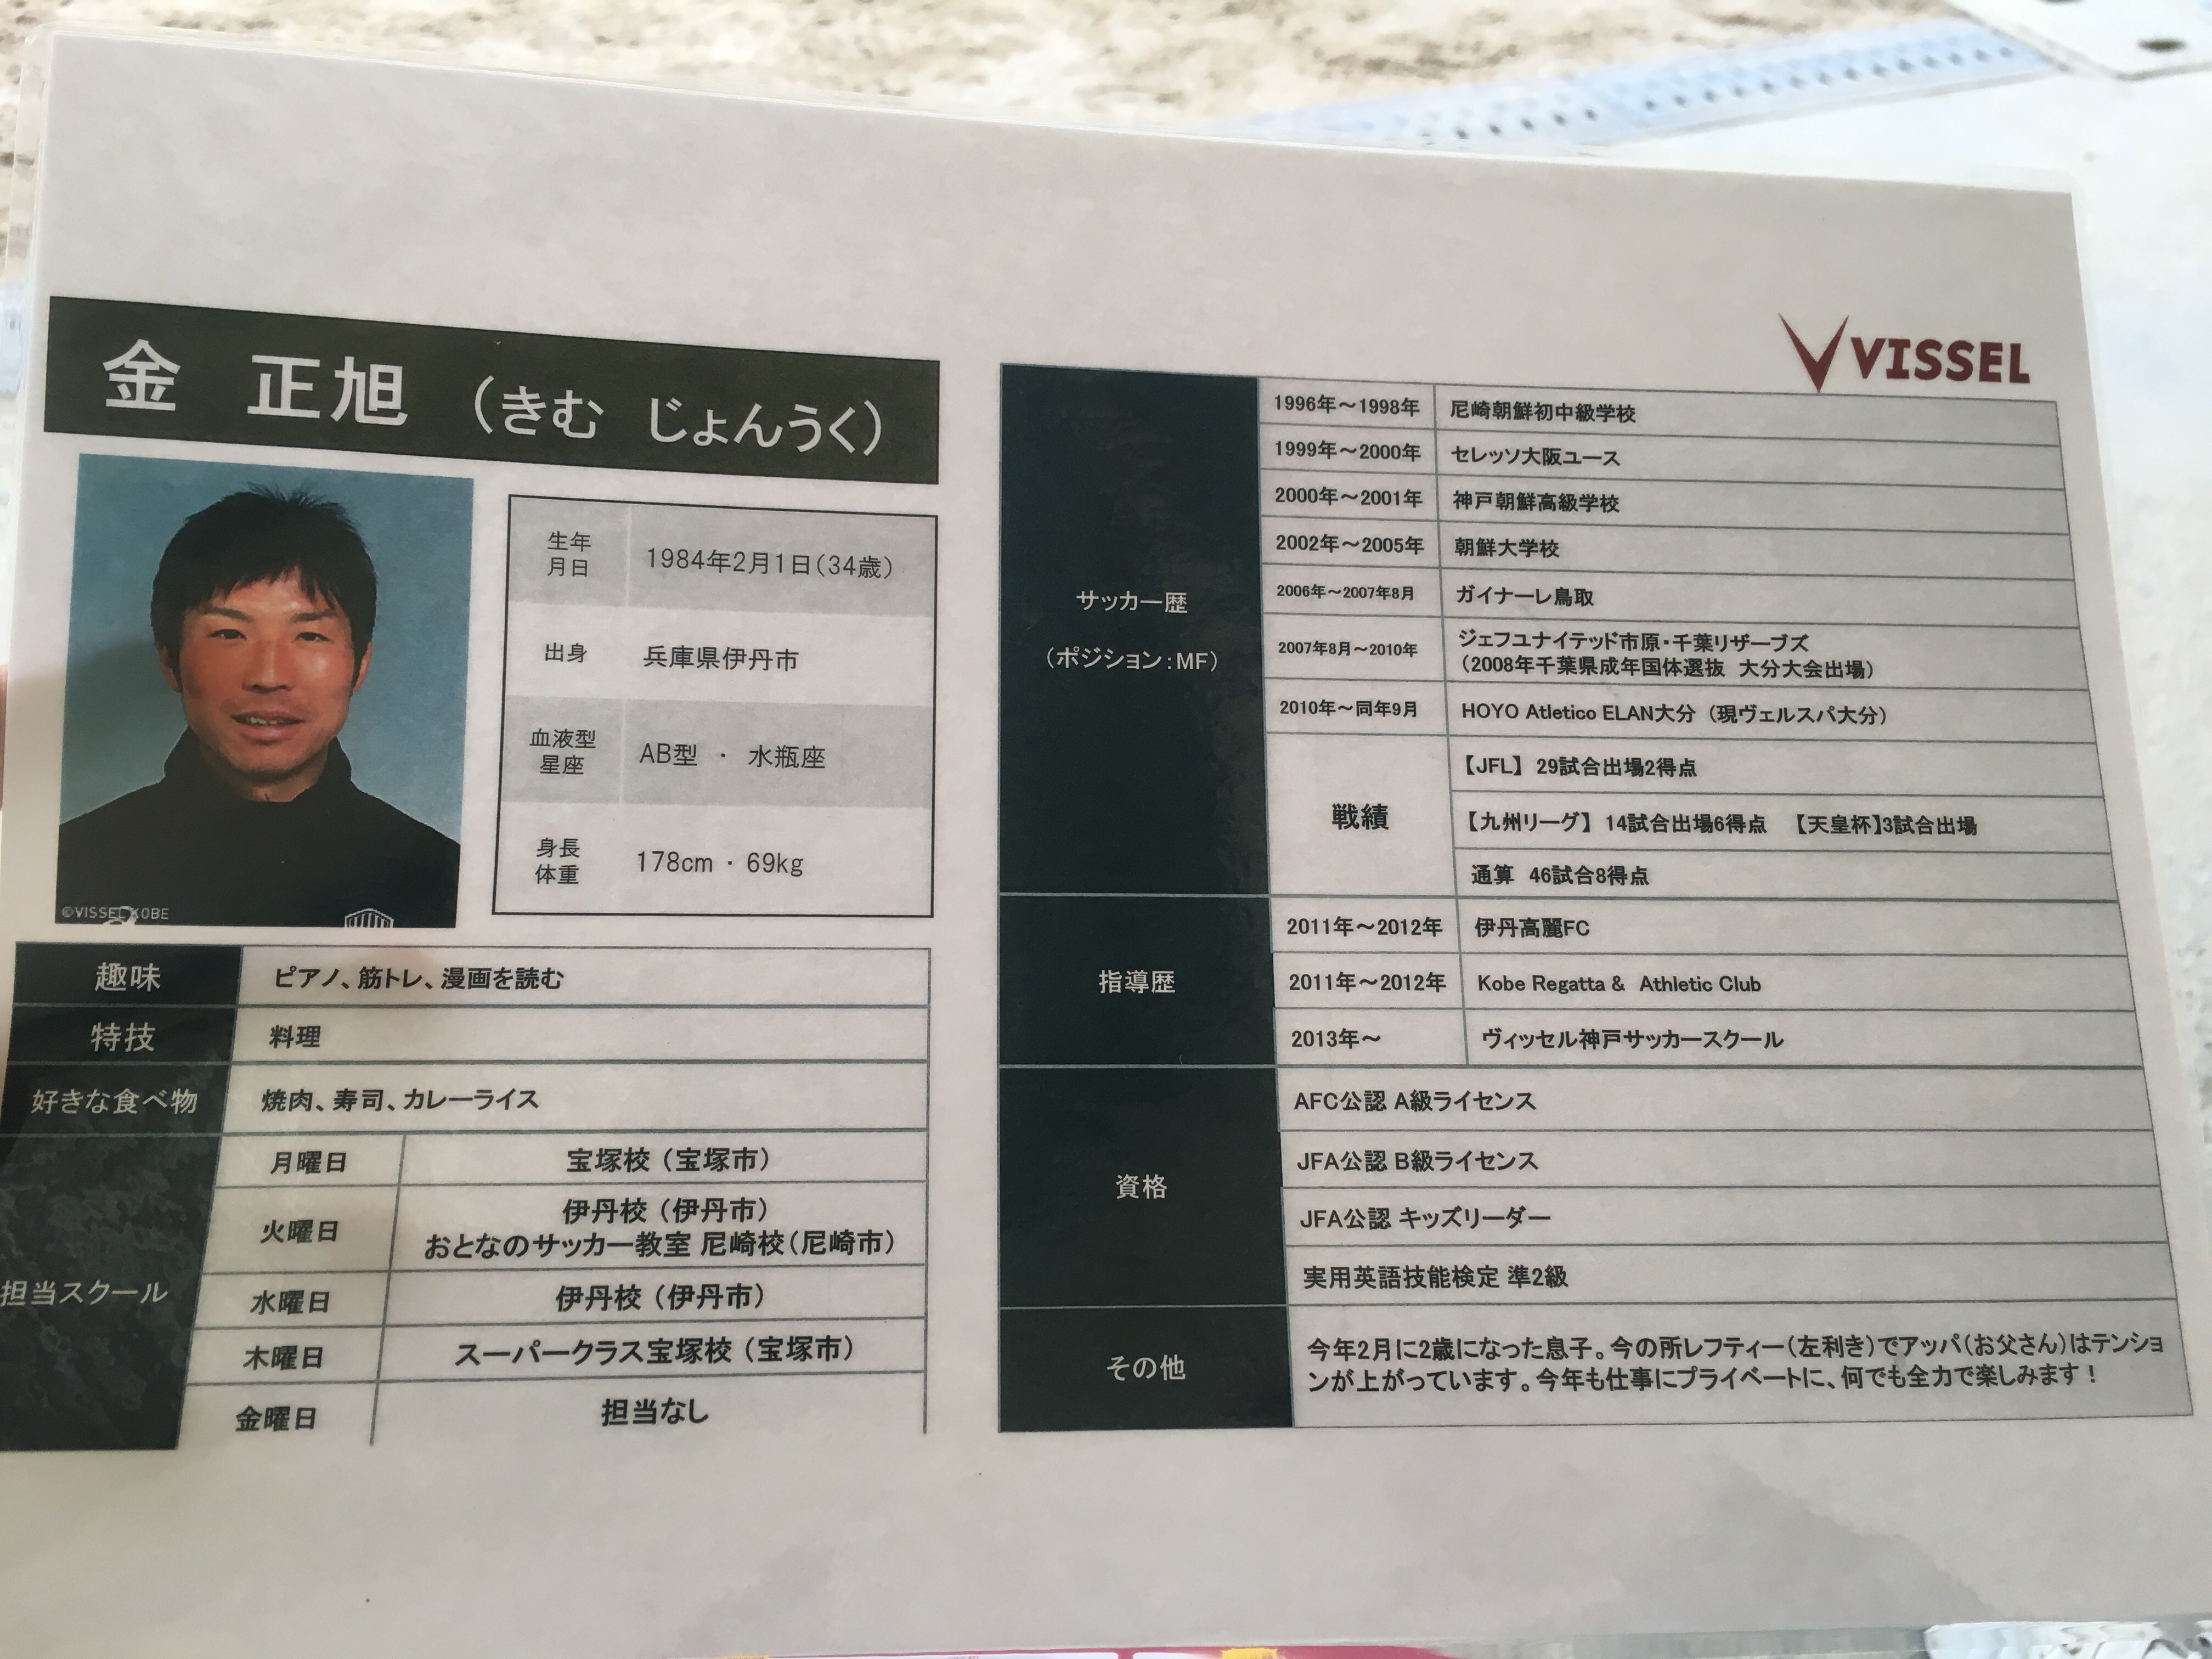 金 正旭 （きむ じょんうく）
生年
月日
1984年2月1日（34歳）
出身
兵庫県伊丹市
血液型
星座
AB型 ・ 水瓶座
身長
体重
178cm ・ 69kg
©VISSEL KOBE
趣味
ピアノ、筋トレ、漫画を読む
特技
料理
好きな食べ物
焼肉、寿司、カレーライス
担当スクール
月曜日
宝塚校（宝塚市）
火曜日
伊丹校（伊丹市）
おとなのサッカー教室 尼崎校（尼崎市）
水曜日
伊丹校（伊丹市）
木曜日
スーパークラス宝塚校（宝塚市）
金曜日
担当なし
VISSEL
サッカー歴
（ポジション：MF）
1996年～1998年
尼崎朝鮮初中級学校
1999年～2000年
セレッソ大阪ユース
2000年～2001年
神戸朝鮮高級学校
2002年～2005年
朝鮮大学校
2006年～2007年8月
ガイナーレ鳥取
2007年8月～2010年
ジェフユナイテッド市原・千葉リザーブズ
（2008年千葉県成年国体選抜 大分大会出場）
2010年～同年9月
HOYO Atletico ELAN大分（現ヴェルスパ大分）
戦績
【JFL】 29試合出場2得点
【九州リーグ】 14試合出場6得点 【天皇杯】3試合出場
通算 46試合8得点
指導歴
2011年～2012年
伊丹高麗FC
2011年～2012年
Kobe Regatta & Athletic Club
2013年～
ヴィッセル神戸サッカースクール
資格
AFC公認 A級ライセンス
JFA公認 B級ライセンス
JFA公認 キッズリーダー
実用英語技能検定 準2級
その他
今年2月に2歳になった息子。今の所レフティー（左利き）でアッパ（お父さん）はテンショ
ンが上がっています。今年も仕事にプライベートに、何でも全力で楽しみます！